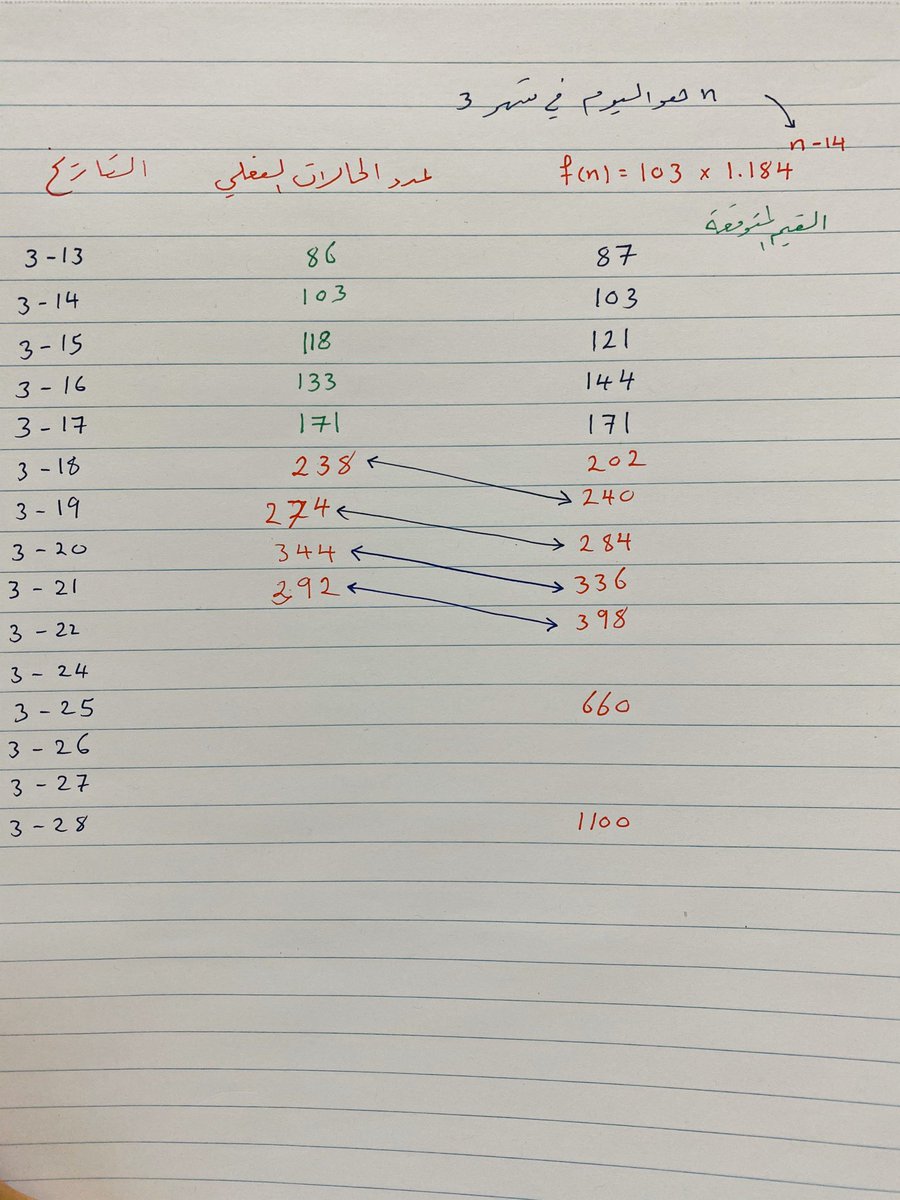 n هو اليوم في شهر 3
التاريخ عدد الحالات الفعلي f(n) = 103 × 1.184^n-14
القيم المتوقعة
3-13 86 87
3-14 103 103
3-15 118 121
3-16 133 144
3-17 171 171
3-18 238 202
3-19 274 240
3-20 344 284
3-21 392 336
3-22 398
3-24
3-25 660
3-26
3-27
3-28 1100